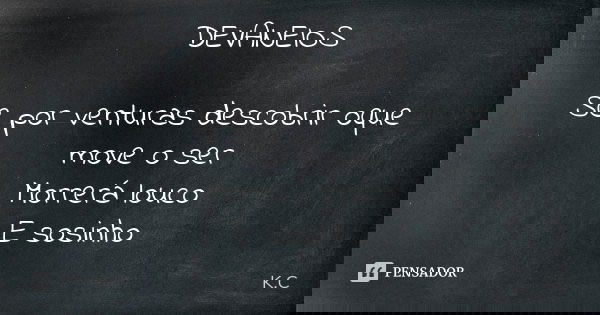 DEVÂNEIOS
Se por venturas descobrir oque
move o ser
Morrerá louco
E sosinho
PENSADOR
K.C